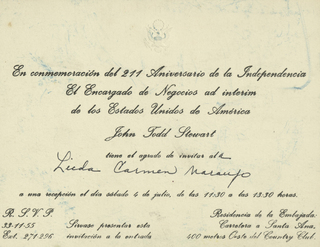 En conmemoración del 211 Aniversario de la Independencia
El Encargado de Negocios ad interim
de los Estados Unidos de América
John Todd Stewart
tiene el agrado de invitar al/a
Carmen Naranjo
a una recepción el día sábado 4 de julio, de las 11:30 a las 13:30 horas.
R. S. V. P.
33-11-55
Ext. 271-296
Sírvase presentar esta
invitación a la entrada
Residencia de la Embajada:
Carretera a Santa Ana,
400 metros Oeste del Country Club.